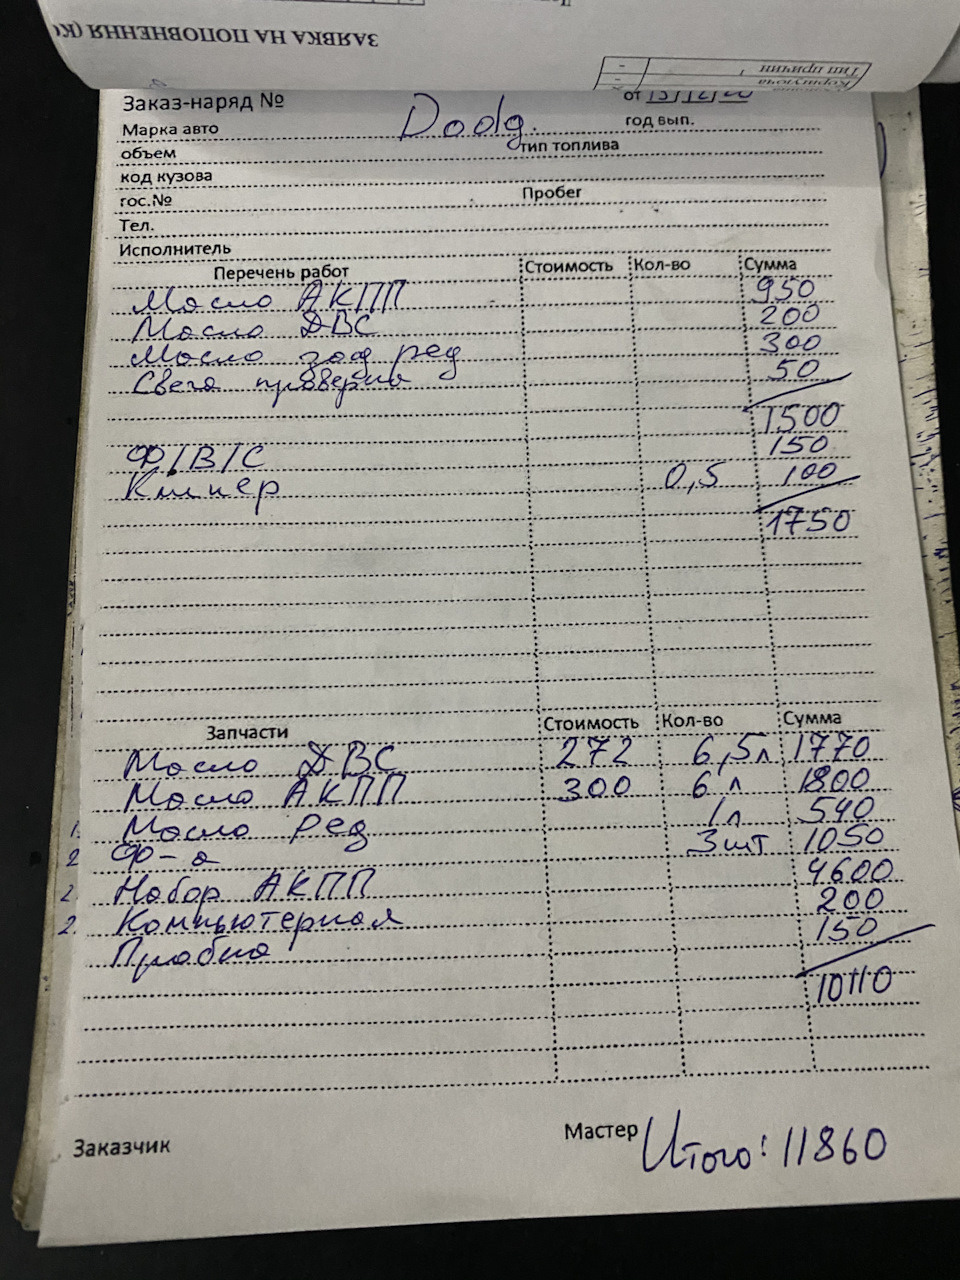 ЗАЯВКА НА ПОПОВНЕННЯ (К
Коригуюча
Тип причин
Заказ-наряд № от 13/12/20
Марка авто Dodg. год вып.
объем тип топлива
код кузова
гос.№ Пробег
Тел.
Исполнитель
Перечень работ Стоимость Кол-во Сумма
Масло АКПП 950
Масло ДВС 200
Масло зад ред 300
Свеча проверка 50
1500
Ф/В/С 150
Клинер 0,5 100
1750
Запчасти Стоимость Кол-во Сумма
Масло ДВС 272 6,5л 1770
Масло АКПП 300 6 л 1800
Масло ред 1л 540
Ф-а 3шт 1050
Набор АКПП 4600
Компьютерная 200
Пробка 150
10110
Заказчик Мастер Итого: 11860